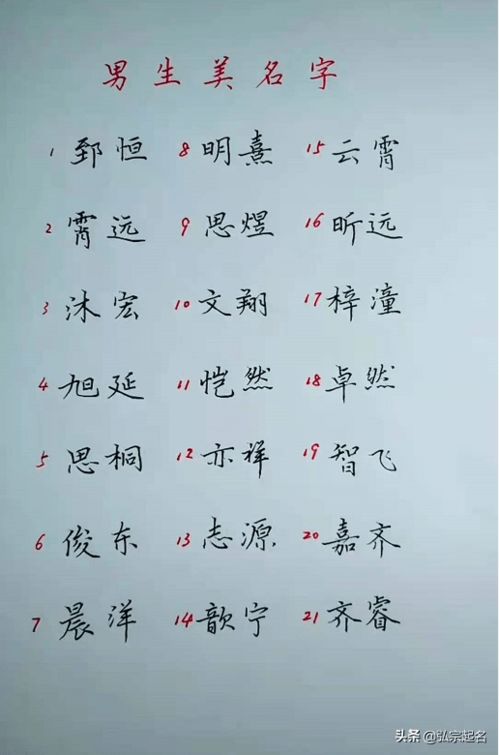 男生美名字
1 郅恒 8 明熹 15 云霄
2 霄远 9 思煜 16 昕远
3 沐宏 10 文翔 17 梓潼
4 旭延 11 恺然 18 卓然
5 思桐 12 亦祥 19 智飞
6 俊东 13 志源 20 嘉齐
7 晨洋 14 歆宁 21 齐睿
头条 @弘宗起名